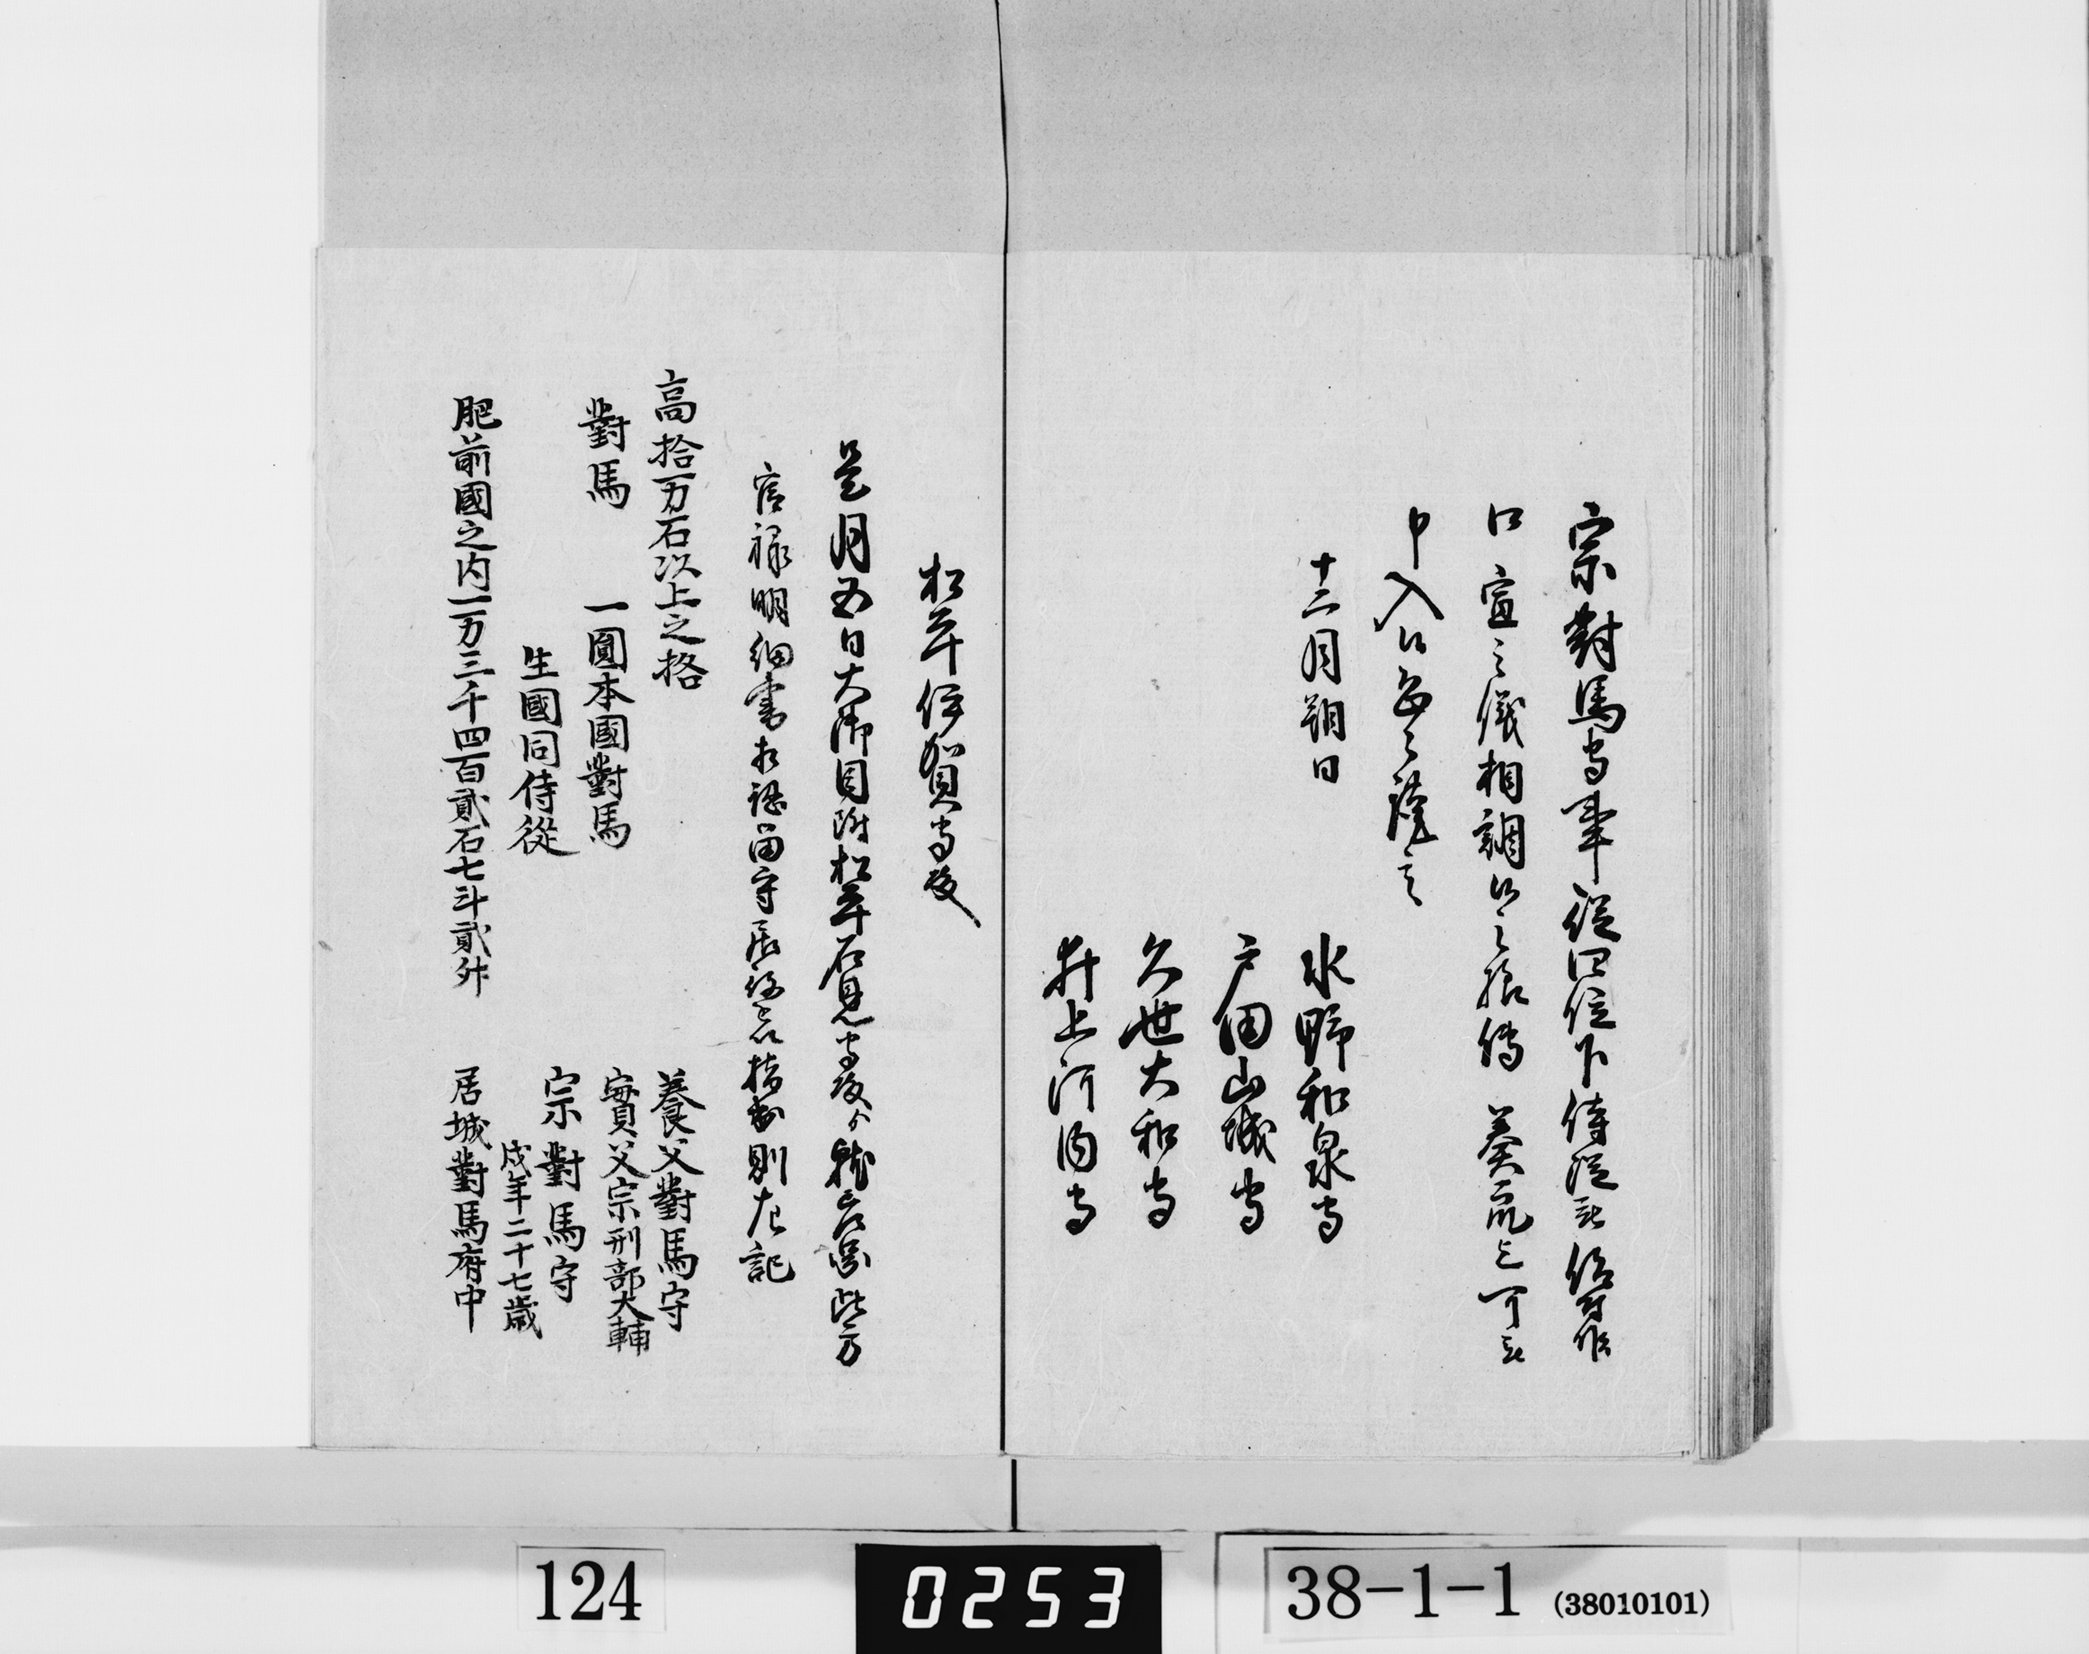 宗對馬守事従四位下侍従被仰付候
口宣之儀相調候之様傳 奏衆迄可被
申入候恐々謹言
十二月朔日
水野和泉守
戸田山城守
久世大和守
井上河内守
松平伊賀守殿
是月五日大御目附松平石見守殿ゟ就召罷出候処此方
官禄明細書相認留守居 指出則左記
高拾万石以上之格
對馬 一圓本國對馬
生國同侍従
肥前國之内一万三千四百貳石七斗貳舛
養父對馬守
實父宗刑部大輔
宗對馬守
戌年二十七歳
居城對馬府中
124
0253
38-1-1 (38010101)